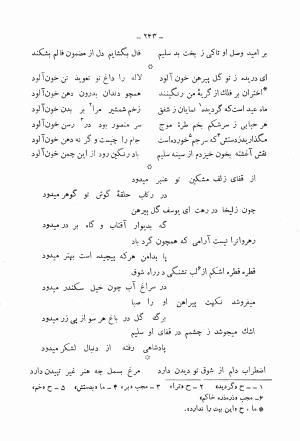 – ۲۴۳ –
بر امید وصل او تاکی ز بخت بد سلیم
فال بگشایم دل از مضمون فالم بشکند
*
ای دریده ز تو گل پیرهن خون آلود
لاله را داغ تو تعویذ تن خون آلود
*اختران بر فلک از گریهٔ من رنگینند
همچو دندان بدرون دهن خون آلود
ماه عید است که گردیده۱ نمایان ز شفق
زخم شمشیر مرا۲ بر بدن خون آلود
هر حبابی ز سرشکم بخم طرهٔ موج
سر منصور بود در۳ رسن خون آلود
مگذار بد زدستش۴ که سر جم۵ خورده است
جام را چیست و گر نه دهن خون آلود
نقش آغشته بخون خیزدم از سینه سلیم
باد رنگین رود از این چمن خون آلود
*
از قفای زلف مشکین تو عنبر میدود
در رکاب حلقهٔ گوش تو گوهر میدود
چون زلیخا در رهت ای یوسف گل پیرهن
گه بدیوار آفتاب و گاه بر در میدود
رهروانرا نیست آرامی که همچون گرد باد
پا بدامن هر که پیچیده است بهتر میدود
قطره قطره اشکم از۶ لب تشنگی در راه شوق
در سراغ آب چون خیل سکندر میدود
میفروشد نکهت پیراهن او را صبا
برگه گل در باغ هر سو از پی زر میدود
اشک میجوشد ز چشمم در قفای او سلیم
پادشاهی رفته از دنبال لشکر میدود
*
اضطراب دلم از شوق تو دیدن دارد
مرغ بسمل چه هنر غیر تپیدن دارد
۱ – ح «گردید» ۲ – ح «ترا» ۳ – مجب «بر» ۴ – ما «بدستش» ۵ – ح «خم»
۶ – مجب
* ما ، ح «این بیت را ندارد».